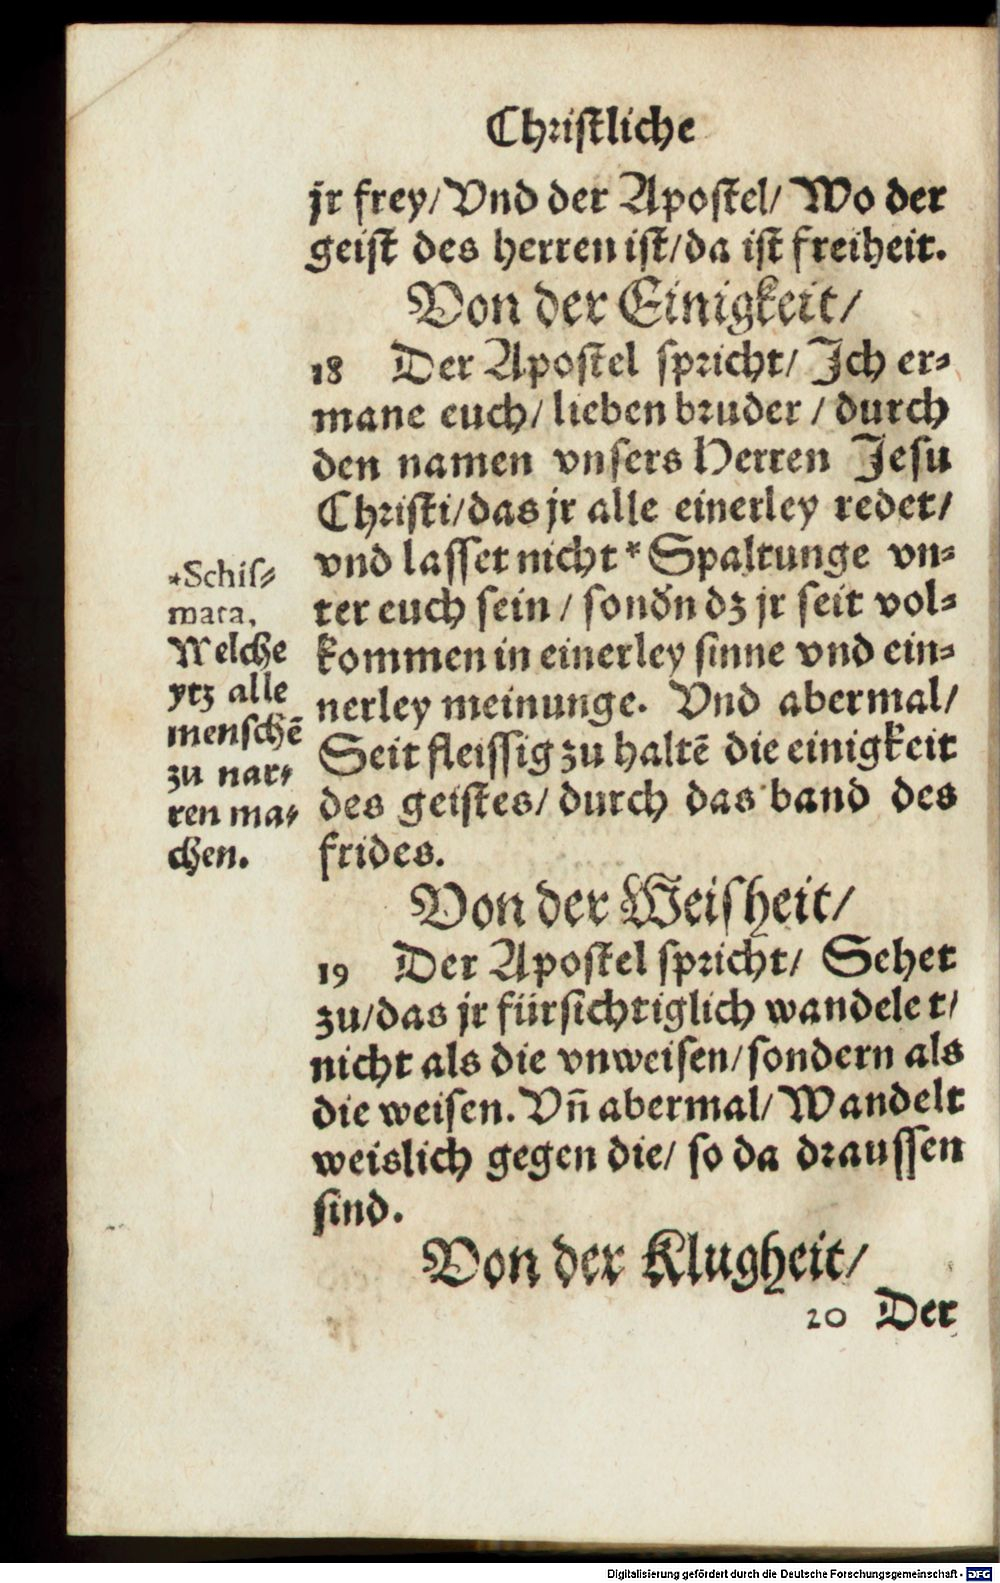 Christliche
jr frey/ Vnd der Apostel/ Wo der
geist des herren ist/ da ist freiheit.
Von der Einigkeit/
18 Der Apostel spricht/ Jch er⸗
mane euch/ lieben bruder / durch
den namen vnsers Herren Jesu
Christi/ das jr alle einerley redet/
vnd lasset nicht * Spaltunge vn⸗
ter euch sein / sonďn dz jr seit vol⸗
kommen in einerley sinne vnd ein⸗
nerley meinunge. Vnd abermal/
Seit fleissig zu haltē die einigkeit
des geistes/ durch das band des
frides.
*Schis⸗
mata.
Welche
ytz alle
menschē
zu nar⸗
ren ma⸗
chen.
Von der Weisheit/
19 Der Apostel spricht/ Sehet
zu/ das jr fürsichtiglich wandelet/
nicht als die vnweisen/ sondern als
die weisen. Vñ abermal/ Wandelt
weislich gegen die/ so da draussen
sind.
Von der Klugheit/
20 Der
Digitalisierung gefördert durch die Deutsche Forschungsgemeinschaft - DFG